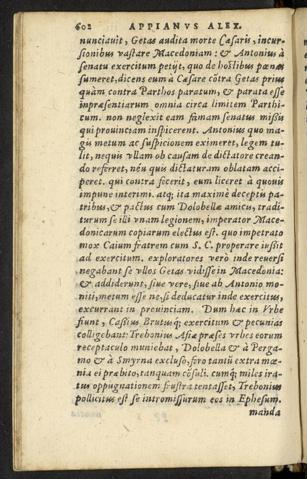 602 APPIANVS ALEX.
nunciauit, Getas audita morte Cæsaris, incur-
sionibus vastare Macedoniam: & Antonius à
senatu exercitum petijt, quo de hostibus pœnas
sumeret, dicens eum à Cæsare cõtra Getas prius
quàm contra Parthos paratum, & parata esse
inpræsentiarum omnia circa limitem Parthi-
cum. non neglexit eam famam senatus misitq́;
qui prouinciam inspicerent. Antonius quo ma-
gis metum ac suspicionem eximeret, legem tu-
lit, nequis vllam ob causam de dictatore crean-
do referret, néu quis dictaturam oblatam acci-
peret. qui contra fecerit, eum liceret à quouis
impune interimi. atq; ita maximè deceptis pa-
tribus, & pactus cum Dolobellæ amicis, tradi-
turum se illi vnam legionem, imperator Mace-
donicarum copiarum electus est. quo impetrato
mox Caium fratrem cum S. C. properare iussit
ad exercitum. exploratores verò inde reuersi
negabant se vllos Getas vidisse in Macedonia:
& addiderunt, siue vere, siue ab Antonio mo-
niti, metum esse ne, si deducatur inde exercitus,
excurrant in prouinciam. Dum hac in Vrbe
fiunt, Caßius Brutusq; exercitum & pecunias
colligebant: Trebonius Asiæ præses vrbes eorum
receptaculo muniebat, Dolobella & à Perga-
mo & à Smyrna excluso, foro tantũ extra mœ-
nia ei præbito, tanquam cõsuli. cumq; miles ira-
tus oppugnationem frustra tentasset, Trebonius
pollicitus est se intromissurum eos in Ephesum.
manda